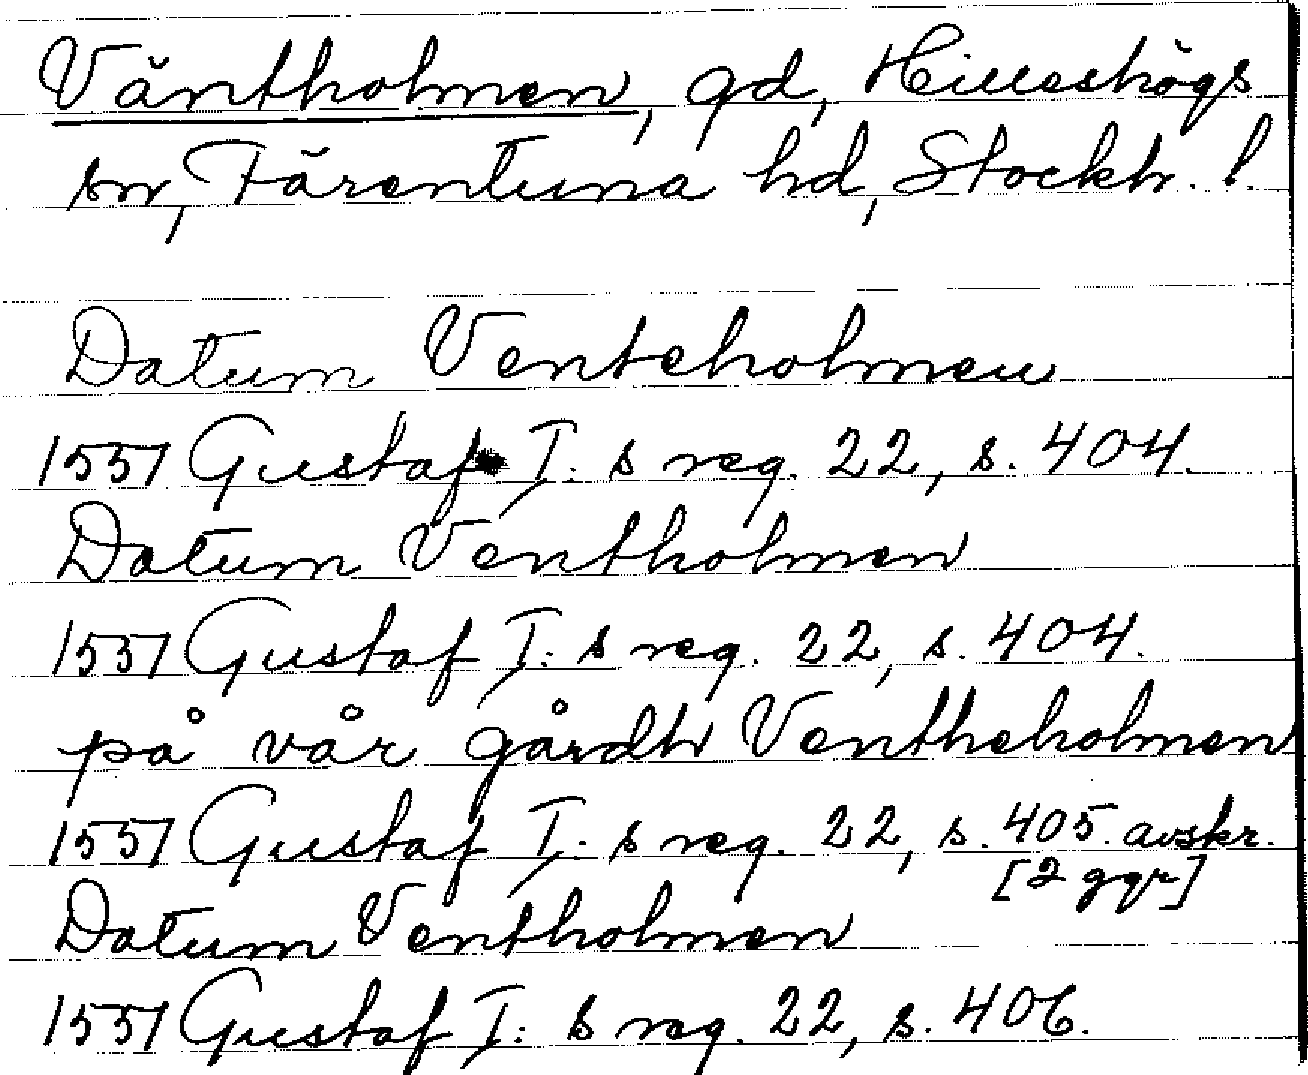 Väntholmen, gd, Hilleshögs
sn, Färentuna hd, Stockh. l.
Datum Venteholmen
1551 Gustaf I:s reg. 22, s. 404.
Datum Ventholmen
1551 Gustaf I:s reg. 22, s. 404.
på vår gårdh Ventheholmen
1551 Gustaf I:s reg. 22, s. 405. avskr.
[2 ggr]
Datum Ventholmen
1551 Gustaf I:s reg. 22, s. 406.